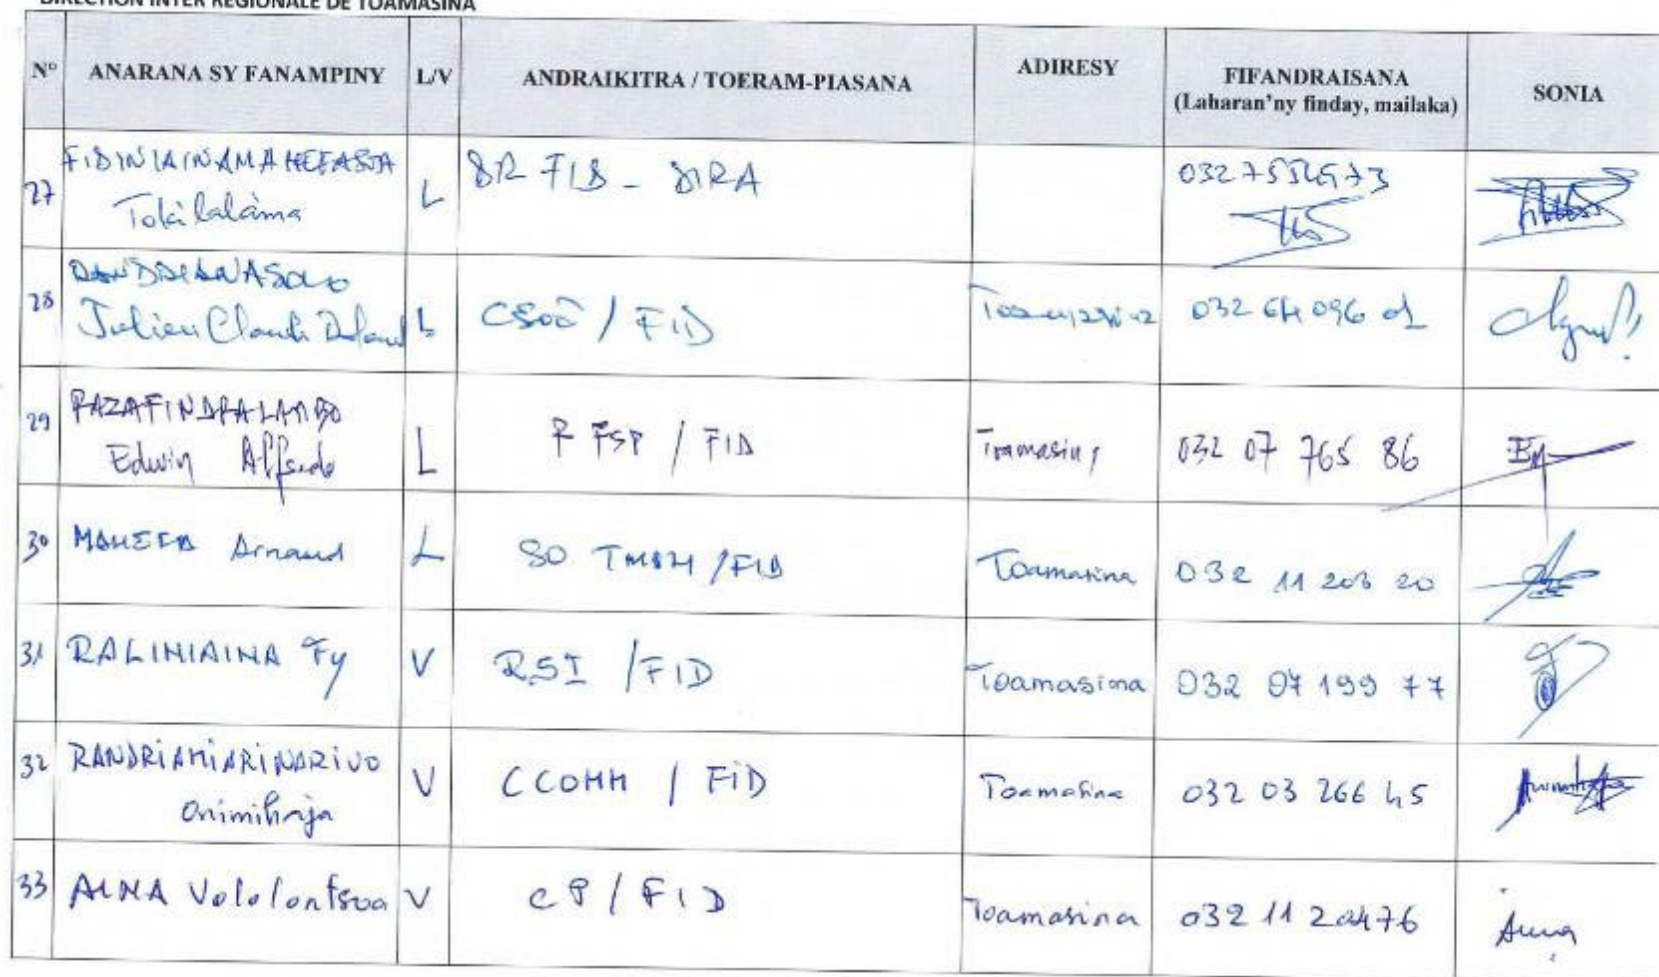 DIRECTION INTER REGIONALE DE TOAMASINA
N° ANARANA SY FANAMPINY L/V ANDRAIKITRA / TOERAM-PIASANA ADIRESY FIFANDRAISANA (Laharan'ny finday, mailaka) SONIA
27 FIDINIAINAMAHEFASOA Tokilalaina L DR FID - DIRA
28 Julien Claude L / FID Toamasina 032 64 096 01
29 RAZAFINDRALAMBO Edwin Alfredo L R FSP / FID Toamasina 032 07 765 86
30 MAHEFA Arnaud L SO / FID Toamasina 032 11 203 20
31 RALINIAINA Fy V RSI / FID Toamasina 032 07 199 77
32 RANDRIAMIARINARIVO Onimihaja V CCOMM / FID Toamasina 032 03 266 45
33 Vololontsoa V CP / FID Toamasina 032 11 204 76